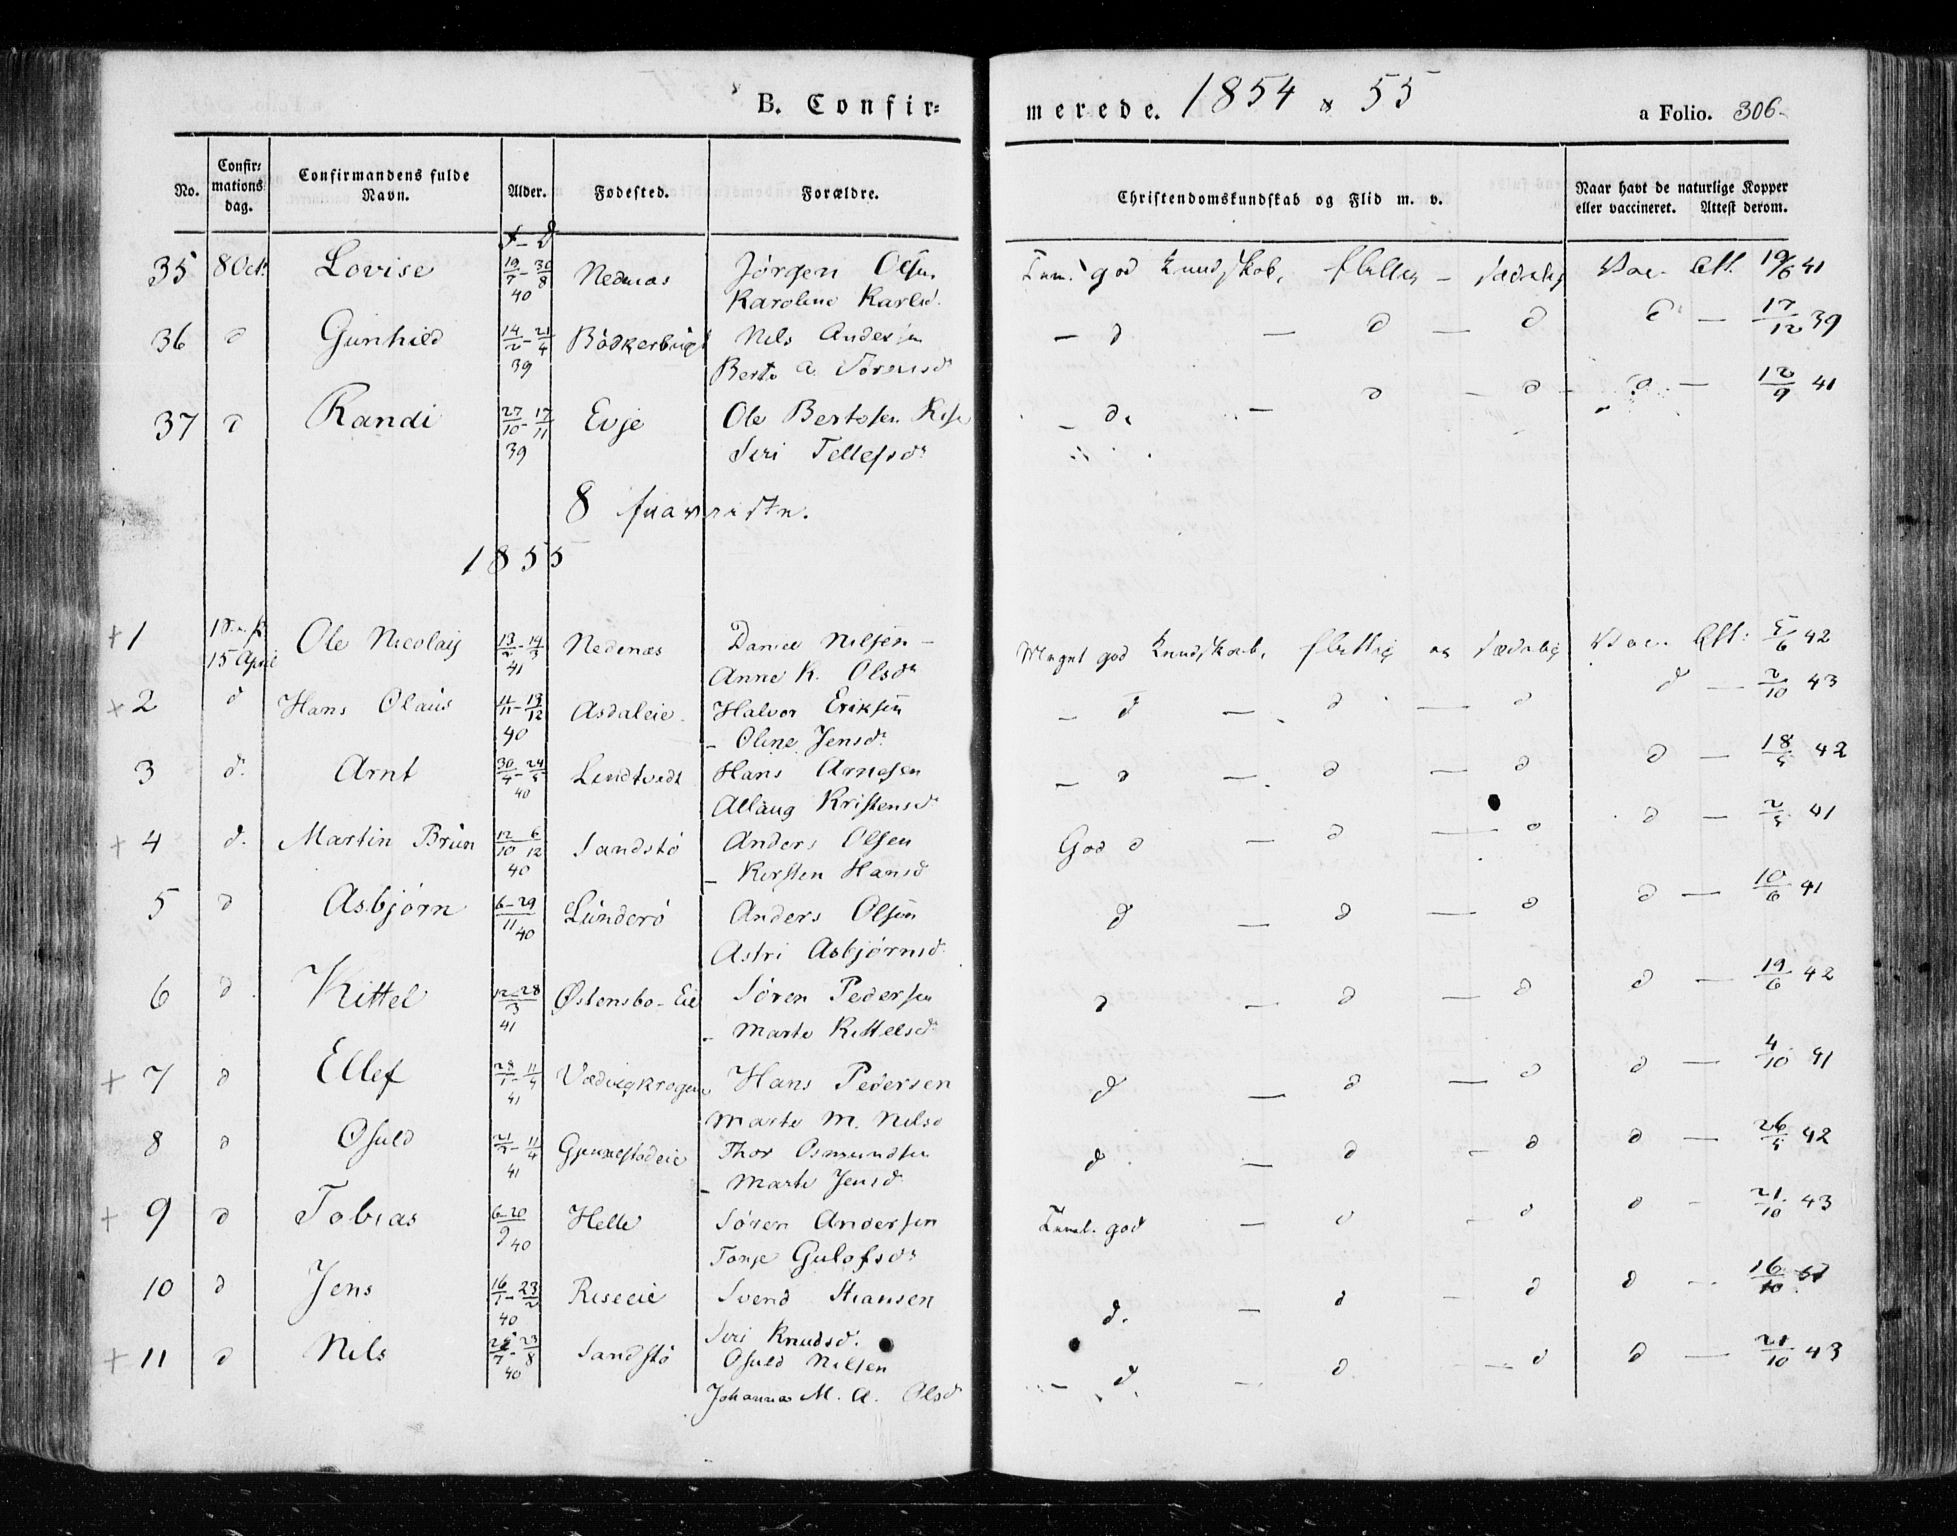 B. Confir= merede. 1854 & 55 a Folio. 306.
No. Confir= mations dag. Confirmandens fulde Navn. Alder. Fødested. Forældre. Christendomskundskab og Flid m. v. Naar havt de naturlige Kopper eller vaccineret. Attest derom.
f - d
35 8 Oct. Lovise 19/7 - 30/8 40 Nedenæs Jörgen Olsen god Kundskab, flittig - sædelig Vac. Att. 19/6 41
Karoline Karlsd.
36 d Gunhild 14/2 - 21/4 39 Bödkerbugt Nils Andersen - d - d - d d - 17/12 39
Berte A. Sörensd
37 d Randi 27/10 - 17/11 39 Evje Ole Bertosen - d. - d - d - d - 12/9 41
Siri Tellefsdr
8
1855
+ 1 15 April Ole Nicolay 13/2 - 14/3 41 Nedenæs Daniel Nilsen - Meget god Kundskab, flittig og sædelig Vac. Att: 5/6 42
Anne K. Olsdr
+ 2 d Hans Olaus 11/11 - 13/12 40 Asdaleie Halvor Eriksen - d - d - d d - 2/10 43
- Oline Jensdr
3 d. Arnt 30/4 - 24/5 40 Lindtvedt Hans Arnesen - d - d - d d - 18/5 42
Allaug Kristensdr
+ 4 d. Martin Brün 12/10 - 6/12 40 Sandstö Anders Olsen God d - d - d d - 2/5 41
- Kirsten Hansd
5 d Asbjörn 6 - 29/11 40 Lunderö Anders Olsen d - d - d d - 10/6 41
Astri Asbjörnsd
6 d Kittel 12 - 28/3 41 Østensbo-Eie Sören Pedersen d - d - d d - 19/6 42
- Marte Kittelsdr
+ 7 d Ellef 28/1 - 11/4 41 Hans Pedersen d - d - d d - 4/10 41
Marte M. Nilsd
8 d Osuld 21/2 - 11/4 41 Thor Osmundsen d - d - d d - 26/5 42
- Marte Jensd
+ 9 d Tobias 6 - 20/9 40 Helle Sören Andersen god - d - d d - 21/10 43
Tonje Gulofsdr
10 d Jens 16/1 - 23/2 40 Riseeie Svend Stiansen d. - d - d d - 16/10
Siri Knudsd.
+ 11 d Nils 25/7 - 23/8 40 Sandstö Osuld Nilsen - d - d - d d - 21/10 43
Johanna M. A. Olsd